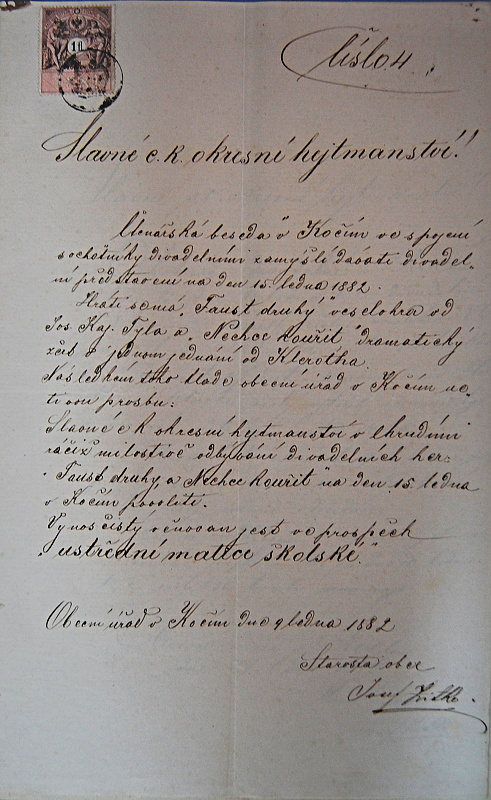 10
Číslo 4
Slavné c. k. okresní hejtmanství!
"Čtenářská beseda" v Kočím ve spojení
s ochotníky divadelními zamýšlí dávati divadel-
ní představení na den 15. ledna 1882.
Hráti se má, "Faust druhý" veselohra od
Jos. Kaj. Tyla a "Nechce kouřit" dramatický
žert v jednom jednání od Klerotha.
Následkem toho klade obecní úřad v Kočím uc-
tivou prosbu:
Slavné c k okresní hejtmanství v Chrudimi
račiž milostivě odbývání divadelních her:
"Faust druhý a Nechce kouřit" na den 15. ledna
v Kočím povoliti.
Výnos čistý věnován jest ve prospěch
"ustřední matice školské."
Obecní úřad v Kočím dne 9 ledna 1882
Starosta obce
Josef